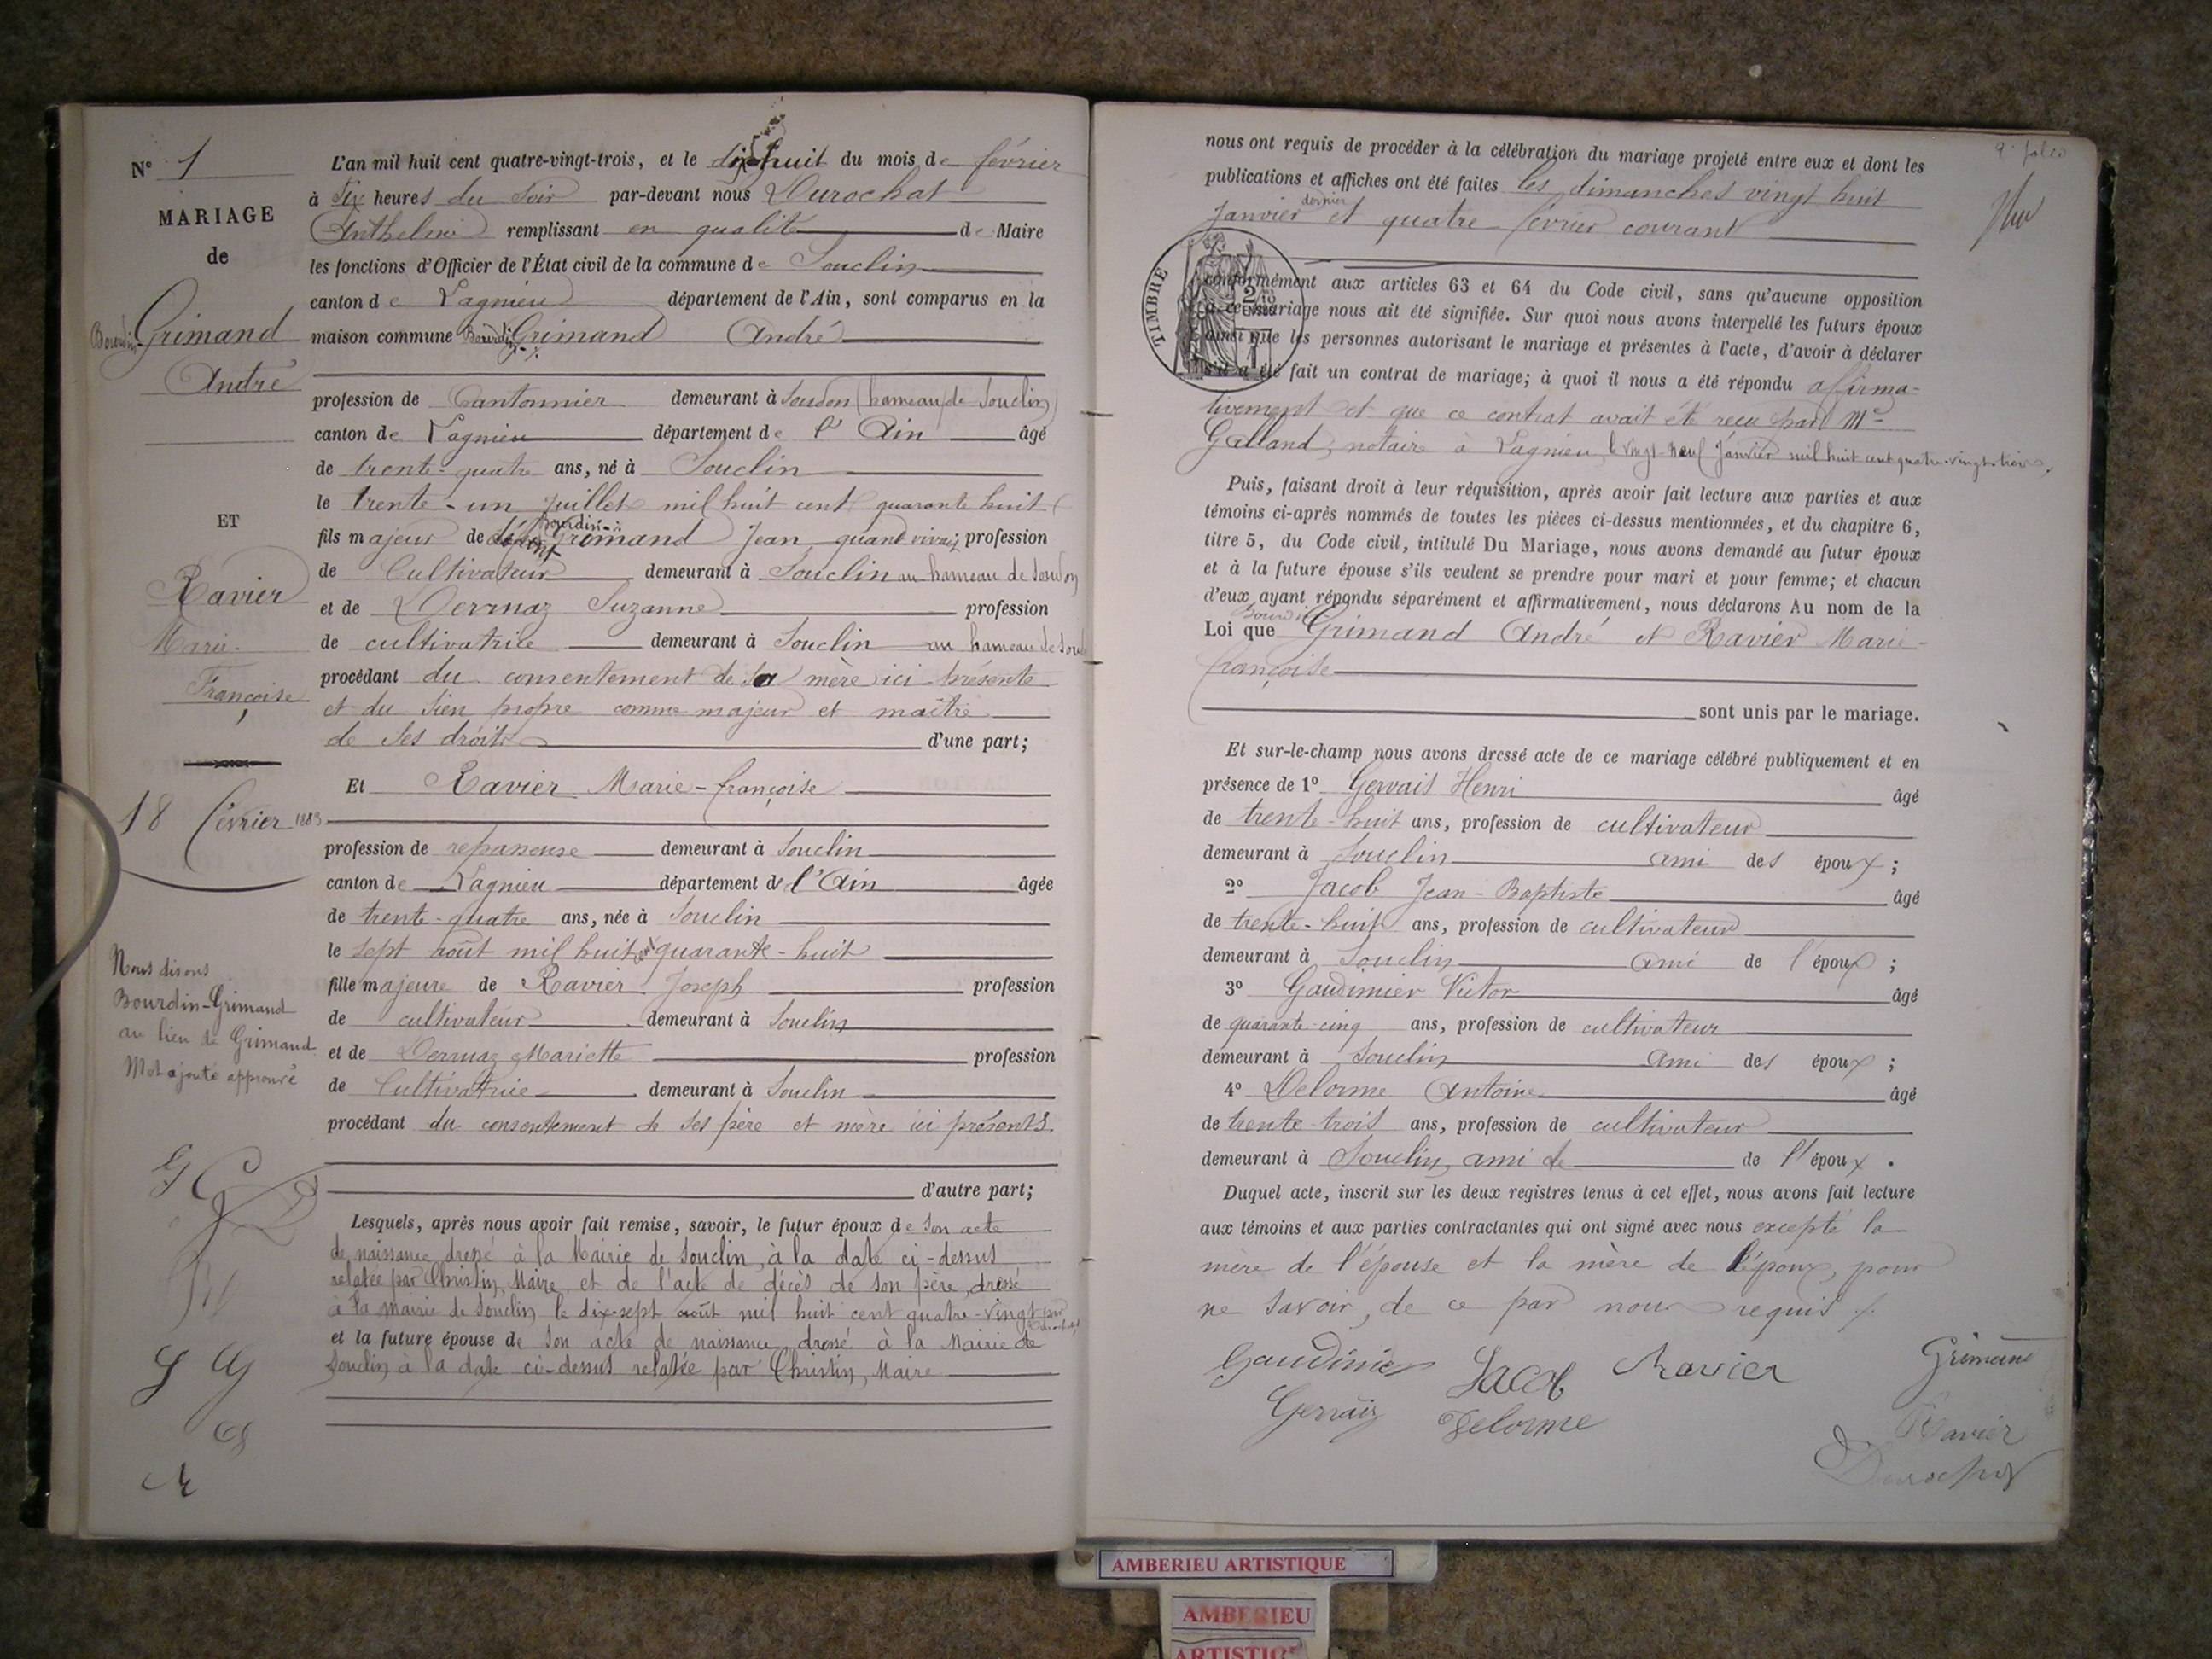 N° 1
MARIAGE
de
Bourdin-Grimand
André
ET
Ravier
Marie-
Françoise
18 février 1883
Nous disons
Bourdin-Grimand
au lieu de Grimand
Mot ajouté approuvé
L'an mil huit cent quatre-vingt-trois, et le dix-huit du mois de février
à six heures du soir par-devant nous Durochat
Anthelme remplissant en qualité de Maire
les fonctions d'Officier de l'État civil de la commune de Souclin
canton de Lagnieu département de l'Ain, sont comparus en la
maison commune Bourdin-Grimand André
profession de Cantonnier demeurant à Soudon (hameau de Souclin)
canton de Lagnieu département de l'Ain âgé
de trente-quatre ans, né à Souclin
le trente-un juillet mil huit cent quarante huit
fils majeur de défunt Bourdin-Grimand Jean, quand vivait profession
de Cultivateur demeurant à Souclin au hameau de Soudon
et de Dermaz Suzanne profession
de cultivatrice demeurant à Souclin au hameau de Soud
procédant du consentement de sa mère ici présente
et du sien propre comme majeur et maître
de ses droits d'une part;
Et Ravier Marie-françoise
profession de repasseuse demeurant à Souclin
canton de Lagnieu département de l'Ain âgée
de trente-quatre ans, née à Souclin
le sept août mil huit cent quarante-huit
fille majeure de Ravier Joseph profession
de cultivateur demeurant à Souclin
et de Dermaz Mariette profession
de Cultivatrice demeurant à Souclin
procédant du consentement de ses père et mère ici présents.
d'autre part;
Lesquels, après nous avoir fait remise, savoir, le futur époux de son acte
de naissance dressé à la Mairie de Souclin, à la date ci-dessus
relatée par Christin, Maire, et de l'acte de décès de son père, dressé
à la mairie de Souclin le dix-sept août mil huit cent quatre-vingt par Durochat
et la future épouse de son acte de naissance dressé à la Mairie de
Souclin à la date ci-dessus relatée par Christin, Maire
9e folio
nous ont requis de procéder à la célébration du mariage projeté entre eux et dont les
publications et affiches ont été faites les dimanches vingt huit
Janvier dernier et quatre février courant
TIMBRE
conformément aux articles 63 et 64 du Code civil, sans qu'aucune opposition
à ce mariage nous ait été signifiée. Sur quoi nous avons interpellé les futurs époux
ainsi que les personnes autorisant le mariage et présentes à l'acte, d'avoir à déclarer
s'il a été fait un contrat de mariage; à quoi il nous a été répondu affirma-
tivement et que ce contrat avait été reçu par Me
Galland, notaire à Lagnieu, le vingt-neuf Janvier mil huit cent quatre-vingt-trois.
Puis, faisant droit à leur réquisition, après avoir fait lecture aux parties et aux
témoins ci-après nommés de toutes les pièces ci-dessus mentionnées, et du chapitre 6,
titre 5, du Code civil, intitulé Du Mariage, nous avons demandé au futur époux
et à la future épouse s'ils veulent se prendre pour mari et pour femme; et chacun
d'eux ayant répondu séparément et affirmativement, nous déclarons Au nom de la
Loi que Bourdin Grimand André et Ravier Marie-
françoise
sont unis par le mariage.
Et sur-le-champ nous avons dressé acte de ce mariage célébré publiquement et en
présence de 1° Gervais Henri âgé
de trente-huit ans, profession de cultivateur
demeurant à Souclin ami des époux;
2° Jacob Jean-Baptiste âgé
de trente-huit ans, profession de cultivateur
demeurant à Souclin ami de l'époux;
3° Gaudimier Victor âgé
de quarante-cinq ans, profession de cultivateur
demeurant à Souclin ami des époux;
4° Delorme Antoine âgé
de trente-trois ans, profession de cultivateur
demeurant à Souclin, ami de de l'époux.
Duquel acte, inscrit sur les deux registres tenus à cet effet, nous avons fait lecture
aux témoins et aux parties contractantes qui ont signé avec nous excepté la
mère de l'épouse et la mère de l'époux, pour
ne savoir, de ce par nous requis
Gaudimier Jacob Ravier Grimand
Gervais Delorme Ravier
Durochat
AMBERIEU ARTISTIQUE
AMBERIEU
ARTISTIQ